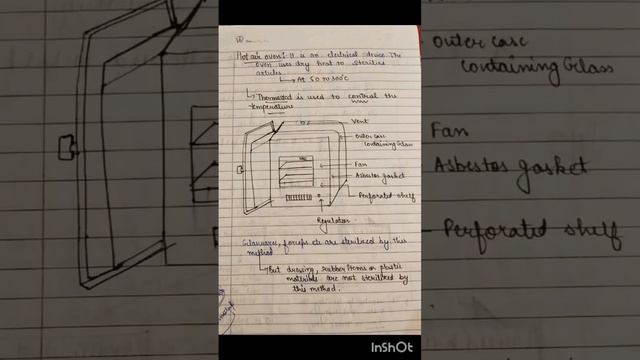 Hot air oven: It is an electrical device. The
oven uses dry heat to sterilise
articles.
At 50 to 300°C
Thermostad is used to control the
temperature
Vent
Outer case
containing Glass
Fan
Asbestos gasket
Perforated shelf
Regulator
Glassware, forceps etc are sterilized by this
method
But dressing, rubber items or plastic
materials are not sterilized by
this method.
Outer case
containing Glass
Fan
Asbestos gasket
Perforated shelf
InShOt